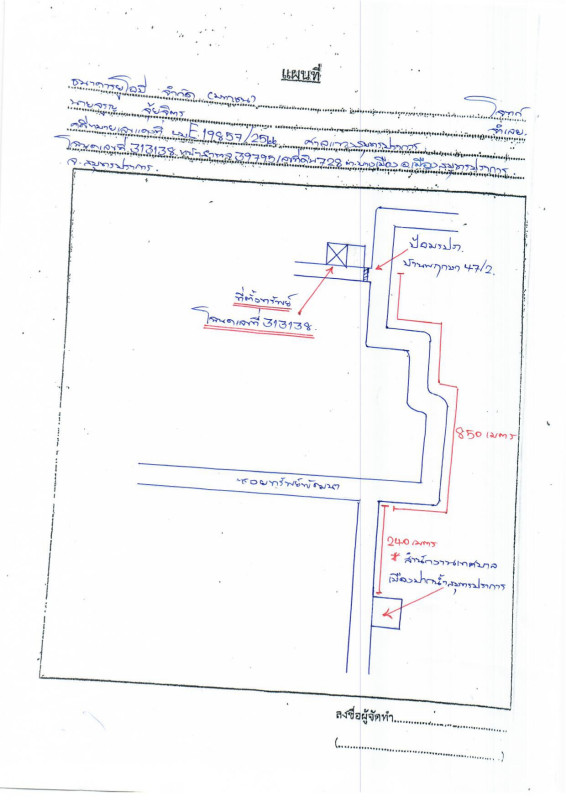 แผนที่
ธนาคารยูโอบี จำกัด (มหาชน) โจทก์
นายจรูญ จำเลย
คดีหมายเลขแดงที่ ผบE19857/25 ศาลแขวงสมุทรปราการ
โฉนดเลขที่ 313138 หน้าสำรวจ 39799 เลขที่ดิน 728 ต.บางเมือง อ.เมืองสมุทรปราการ
จ.สมุทรปราการ.
ป้อมรปภ.
บ้านพฤกษา 47/2.
ที่ตั้งทรัพย์
โฉนดเลขที่ 313138.
850 เมตร
ซอยทรัพย์พัฒนา
240 เมตร
* สำนักงานเทศบาล
เมืองปากน้ำสมุทรปราการ
ลงชื่อผู้จัดทำ
(                    )